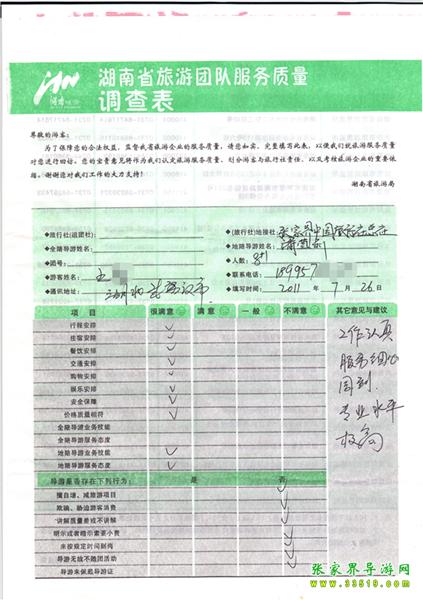 湖南省旅游团队服务质量
调查表
尊敬的游客:
为了保障您的合法权益,监督我省旅游企业的服务质量,请您如实、完整填写此表,以便我们就旅游服务质量
对您进行回访。您的宝贵意见将作为我们认定旅游服务质量、划分游客与旅行社责任、以及考核旅游企业的重要依
据。谢谢您对我们工作的大力支持!
湖南省旅游局
◆旅行社(组团社): ◆旅行社(地接社): 张家界中国
◆全陪导游姓名: ◆地陪导游姓名:
◆团号: ◆人数: 8+1
◆游客姓名: 王 ◆联系电话: 189957
◆通讯地址: 湖北 武汉市 ◆填写时间: 2011 年 7 月 26 日
项 目 很满意 满 意 一 般 不满意 其它意见与建议
行程安排
住宿安排
餐饮安排
交通安排
购物安排
娱乐安排
安全保障
价格质量相符
全陪导游业务技能
全陪导游服务态度
地陪导游业务技能
地陪导游服务态度
工作认真
服务细心
周到
专业水平
极高
导游是否存在下列行为: 是 否
擅自增、减旅游项目
欺骗、胁迫游客消费
讲解质量差或不讲解
明示或者暗示索要小费
未按规定时间到岗
导游无故不随团活动
导游未佩戴导游证
张家界导游网
www.33519.com